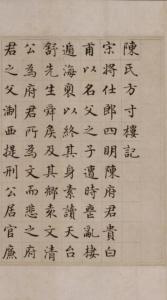 陳氏方寸樓記
宋將仕郎四明陳府君貴白
甫以名父之子遭時亂棲
海以終其身素讀天台
舒先生舜矦及其鄉袁文清
公為府君所為文而悲之府
君之父淛西提刑公居官廉